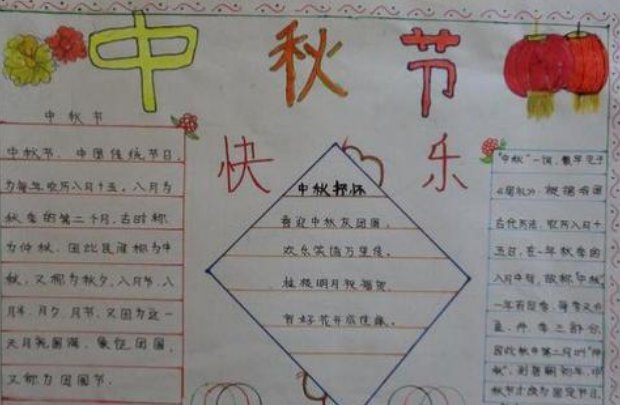 中秋节
快乐
中秋节
中秋节，中国传统节日，
为每年农历八月十五，八月为
秋季的第二个月，古时称
为仲秋，因此民间称为中
秋，又称为秋夕，八月节，八
月半，月夕，月节，又因为这一
天月亮圆满，象征团圆，
又称为团圆节．
中秋抒怀
喜迎中秋庆团圆，
欢乐笑语万里传，
明月祝福贺
花开成佳缘。
"中秋"一词，最早见于
《周礼》，根据我国
古代历法，农历八月十
五日，在一年秋季的
八月中旬，故称"中秋"
一年有四季，每季又分
孟、仲、季三部分
因此秋中第二月叫"仲
秋"，到唐朝初年，中
秋节才成为固定节日．